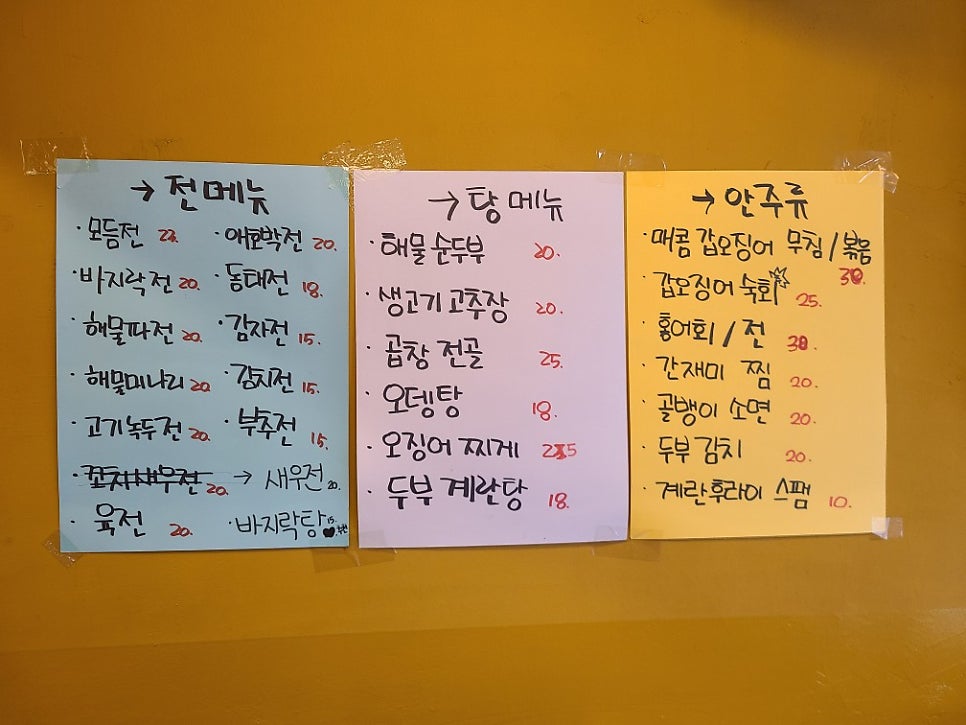 → 전메뉴
· 모듬전 22. · 애호박전 20.
· 바지락전 20. · 동태전 18.
· 해물파전 20. · 감자전 15.
· 해물미나리 20. · 김치전 15.
· 고기녹두전 20. · 부추전 15.
· 꼬치새우전 20. → 새우전 20.
· 육전 20. · 바지락탕 15.
→ 탕 메뉴
· 해물 순두부 20.
· 생고기 고추장 20.
· 곱창 전골 25.
· 오뎅탕 18.
· 오징어 찌게 25
· 두부 계란탕 18.
→ 안주류
· 매콤 갑오징어 무침 / 볶음
30.
· 갑오징어 숙회 25.
· 홍어회 / 전 30.
· 간재미 찜 20.
· 골뱅이 소면 20.
· 두부 김치 20.
· 계란후라이 스팸 10.